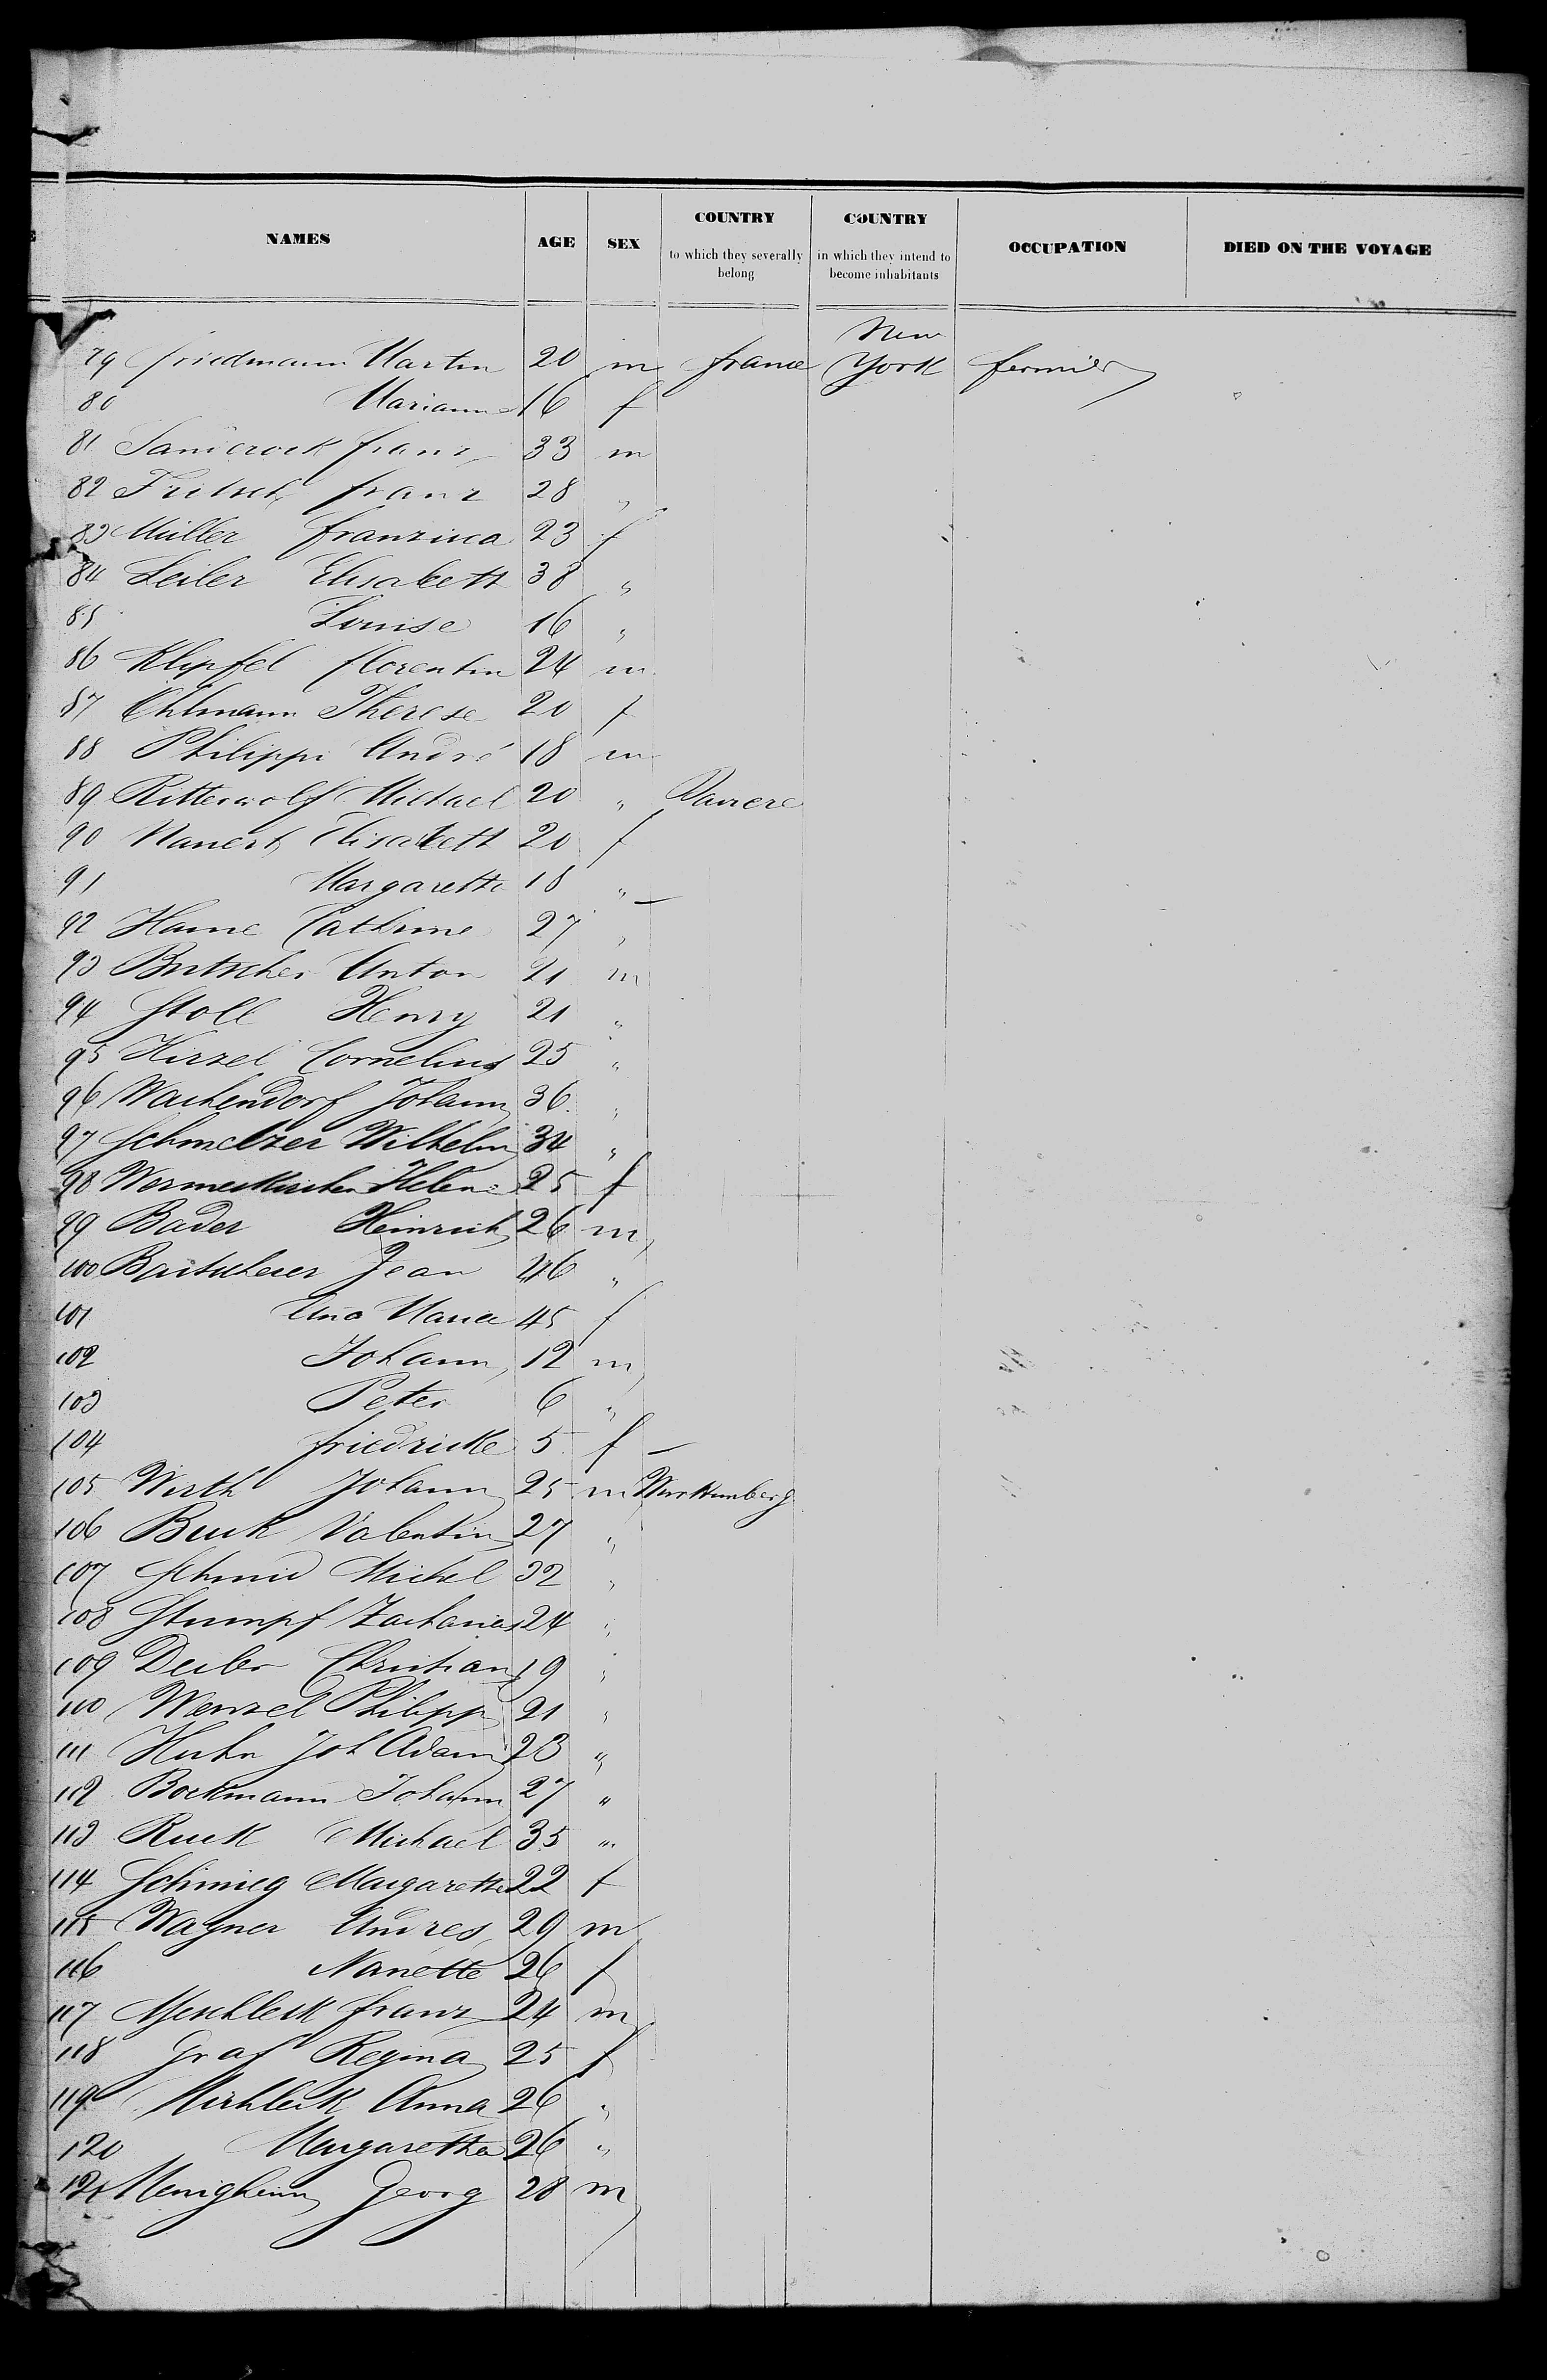 NAMES AGE SEX COUNTRY to which they severally belong COUNTRY in which they intend to become inhabitants OCCUPATION DIED ON THE VOYAGE
79 friedmann Martin 20 m france New York fermier
80 Marianne 16 f
81 franz 33 m
82 Fritsch franz 28 "
83 Müller franzisca 23 f
84 Leiler Elisabeth 38 "
85 Louise 16 "
86 Klipfel florentin 24 m
87 Ohlmann Therese 20 f
88 Philippi André 18 m
89 Ritterwolf Michael 20 " Baviere
90 Elisabeth 20 f
91 Margaretha 18 "
92 Hame Cathrine 27 "
93 Butscher Anton 21 m
94 Stoll Henry 21 "
95 Hirzel Cornelius 25 "
96 Wachendorf Johann 36 "
97 Schmelzer Wilhelm 34 "
98 Wermeskirchen Helene 25 f
99 Bader Heinrich 26 m
100 Jean 46 "
101 Ana Maria 45 f
102 Johann 12 m
103 Peter 6 "
104 friedricke 5 f
105 Wirth Johann 25 m Wurttemberg
106 Buck Valentin 27 "
107 Schmid Michel 32 "
108 Stumpf Zacharias 24 "
109 Deiler Christian 19 "
110 Wenzel Philipp 21 "
111 Huhn Joh Adam 23 "
112 Bockmann Johann 27 "
113 Ruck Michael 35 "
114 Schmieg Margaretha 22 f
115 Wagner Andres 29 m
116 Nanette 26 f
117 franz 24 m
118 Graf Regina 25 f
119 Anna 26 "
120 Margaretha 26 "
121 Georg 28 m